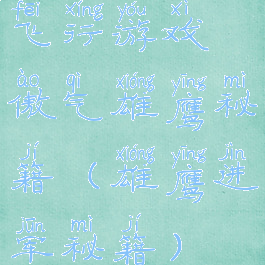 fēi xíng yóu xì
飞行游戏
ào qì xióng yīng mì
傲气雄鹰秘
jí xióng yīng jìn
籍(雄鹰进
jūn mì jí
军秘籍)